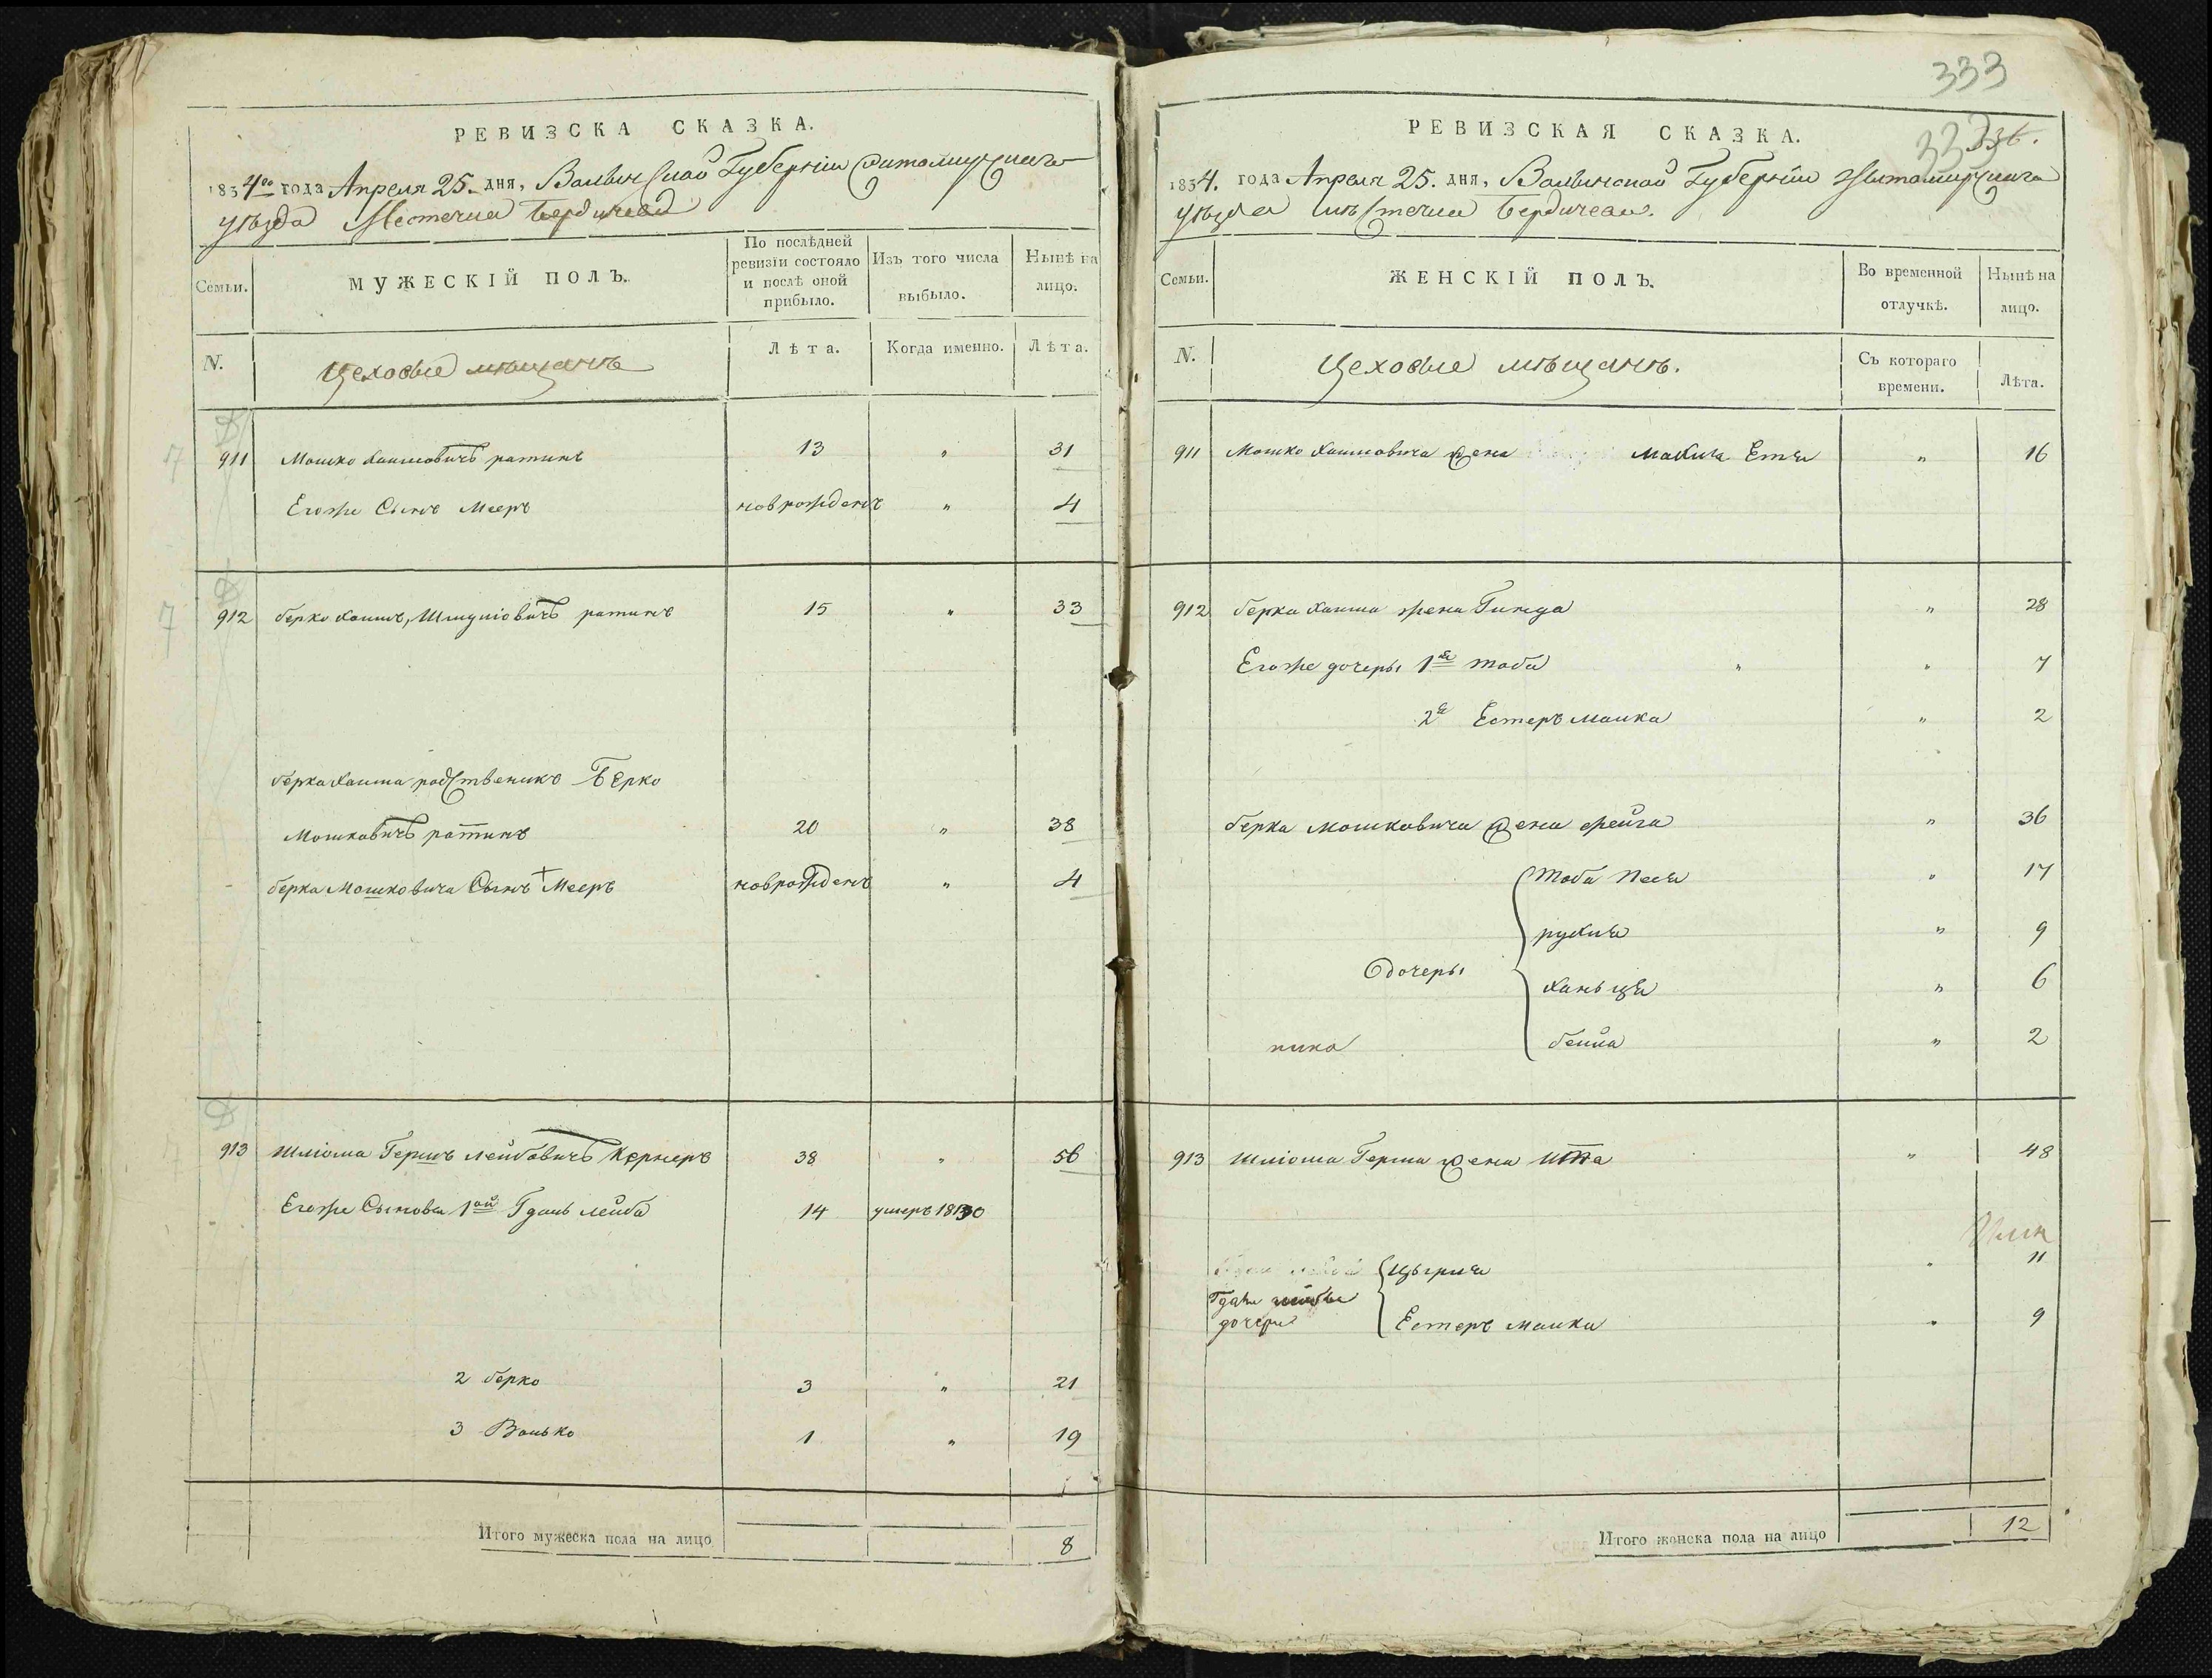 333
РЕВИЗСКА СКАЗКА.
1834го года Апреля 25. дня, Волынской Губернии Житомирскаго
уѣзда Местечка Бердичева
Семьи.
МУЖЕСКІЙ ПОЛЪ.
По послѣдней ревизіи состояло и послѣ оной прибыло.
Изъ того числа выбыло.
Нынѣ на лицо.
N.
Цеховые мѣщанъ
Лѣта.
Когда именно.
Лѣта.
911 Мошко Хаимовичъ ратинъ 13 " 31
Егоже Сынъ Мееръ новрожденъ " 4
912 берко Хаимъ, Шмуліовичъ ратинъ 15 " 33
берка Хаима родственикъ Берко
Мошковичъ ратинъ 20 " 38
берка Мошковича Сынъ Мееръ новрожденъ " 4
913 Шліома Гершъ лейбовичъ Кернеръ 38 " 56
Егоже Сыновья 1ой Гдаль лейба 14 умеръ 1830
2 берко 3 " 21
3 Волько 1 " 19
Итого мужеска пола на лицо 8
РЕВИЗСКАЯ СКАЗКА.
333 336.
1834. года Апреля 25. дня, Волынской Губерніи Житомирскаго
уѣзда мѣстечка Бердичева.
Семьи.
ЖЕНСКІЙ ПОЛЪ.
Во временной отлучкѣ.
Нынѣ на лицо.
N.
Цеховые мѣщанъ.
Съ котораго времени.
Лѣта.
911 Мошко Хаимовича жена Махля Етя " 16
912 берка Хаима жена Гинда " 28
Егоже дочеры 1я тоба " " 7
2я Естеръ малка " 2
берка Мошковича жена фейга " 36
Тоба Песя " 17
рухля " 9
дочеры
Ханьця " 6
бейла " 2
913 Шліома Герша жена Итта " 48
Цырля " 11
Гдаля лейбы
дочери
Естеръ малка " 9
Итого женска пола на лицо 12